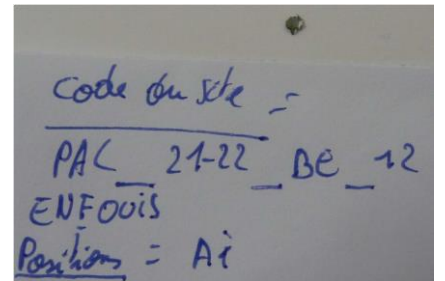 Code du site =
PAC_21-22_BE_12
ENFOUIS
Positions = Ai